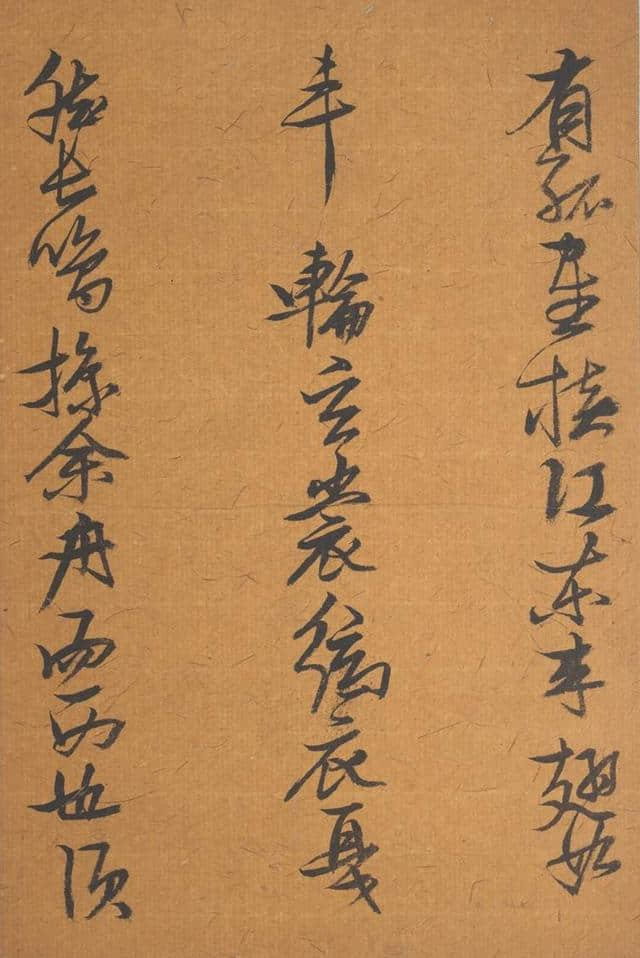 有孤鹤横江东来翅如
车輪玄裳缟衣戛
然长鸣掠余舟而西也须